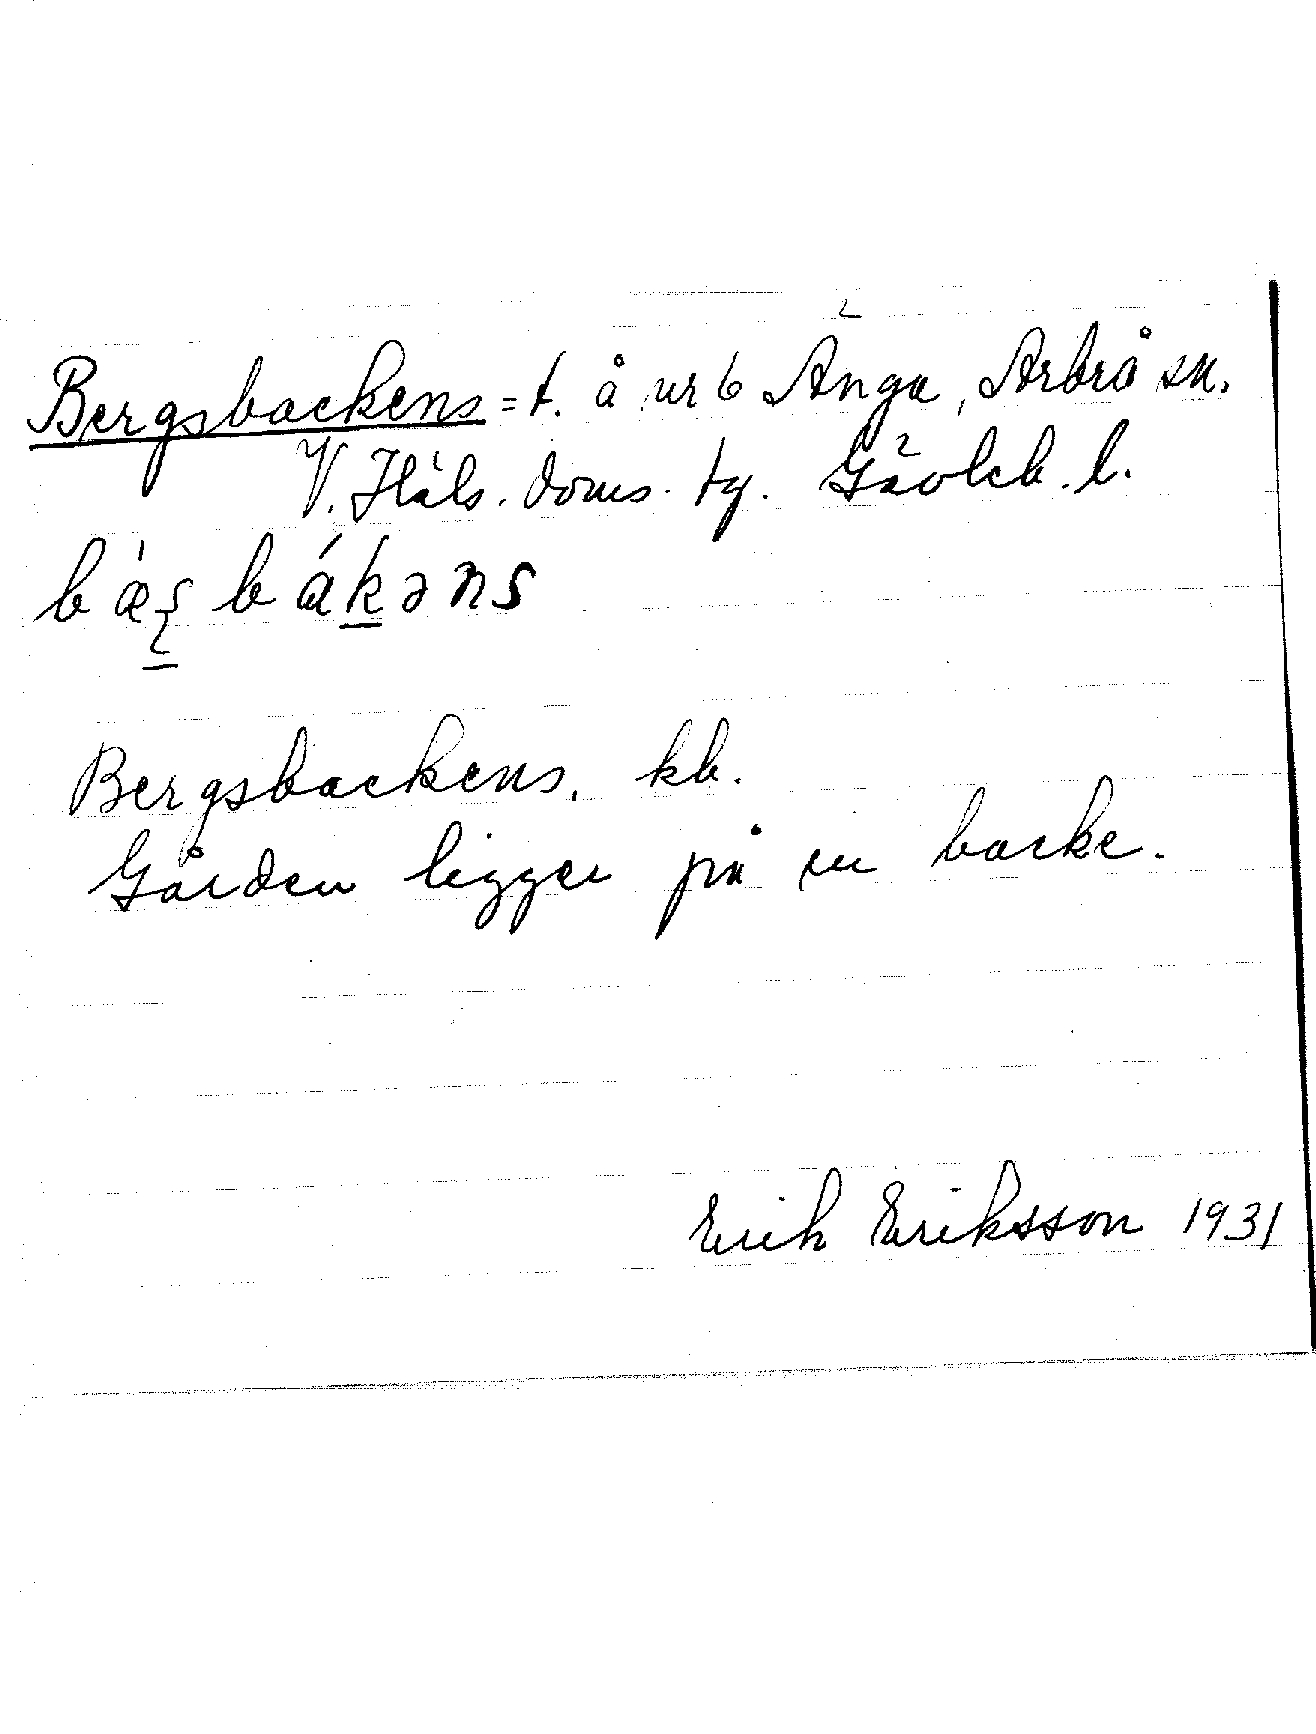 Bergsbackens = t. å nr 6 Änga, Arbrå sn.
V. Häls. doms. tg. Gävleb. l.
bákəns
Bergsbackens, kb.
Gården ligger på en backe.
Erik Eriksson 1931